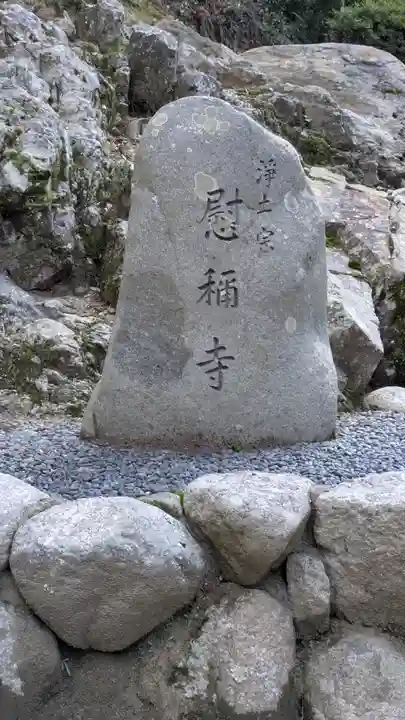 浄土宗
慰稱寺